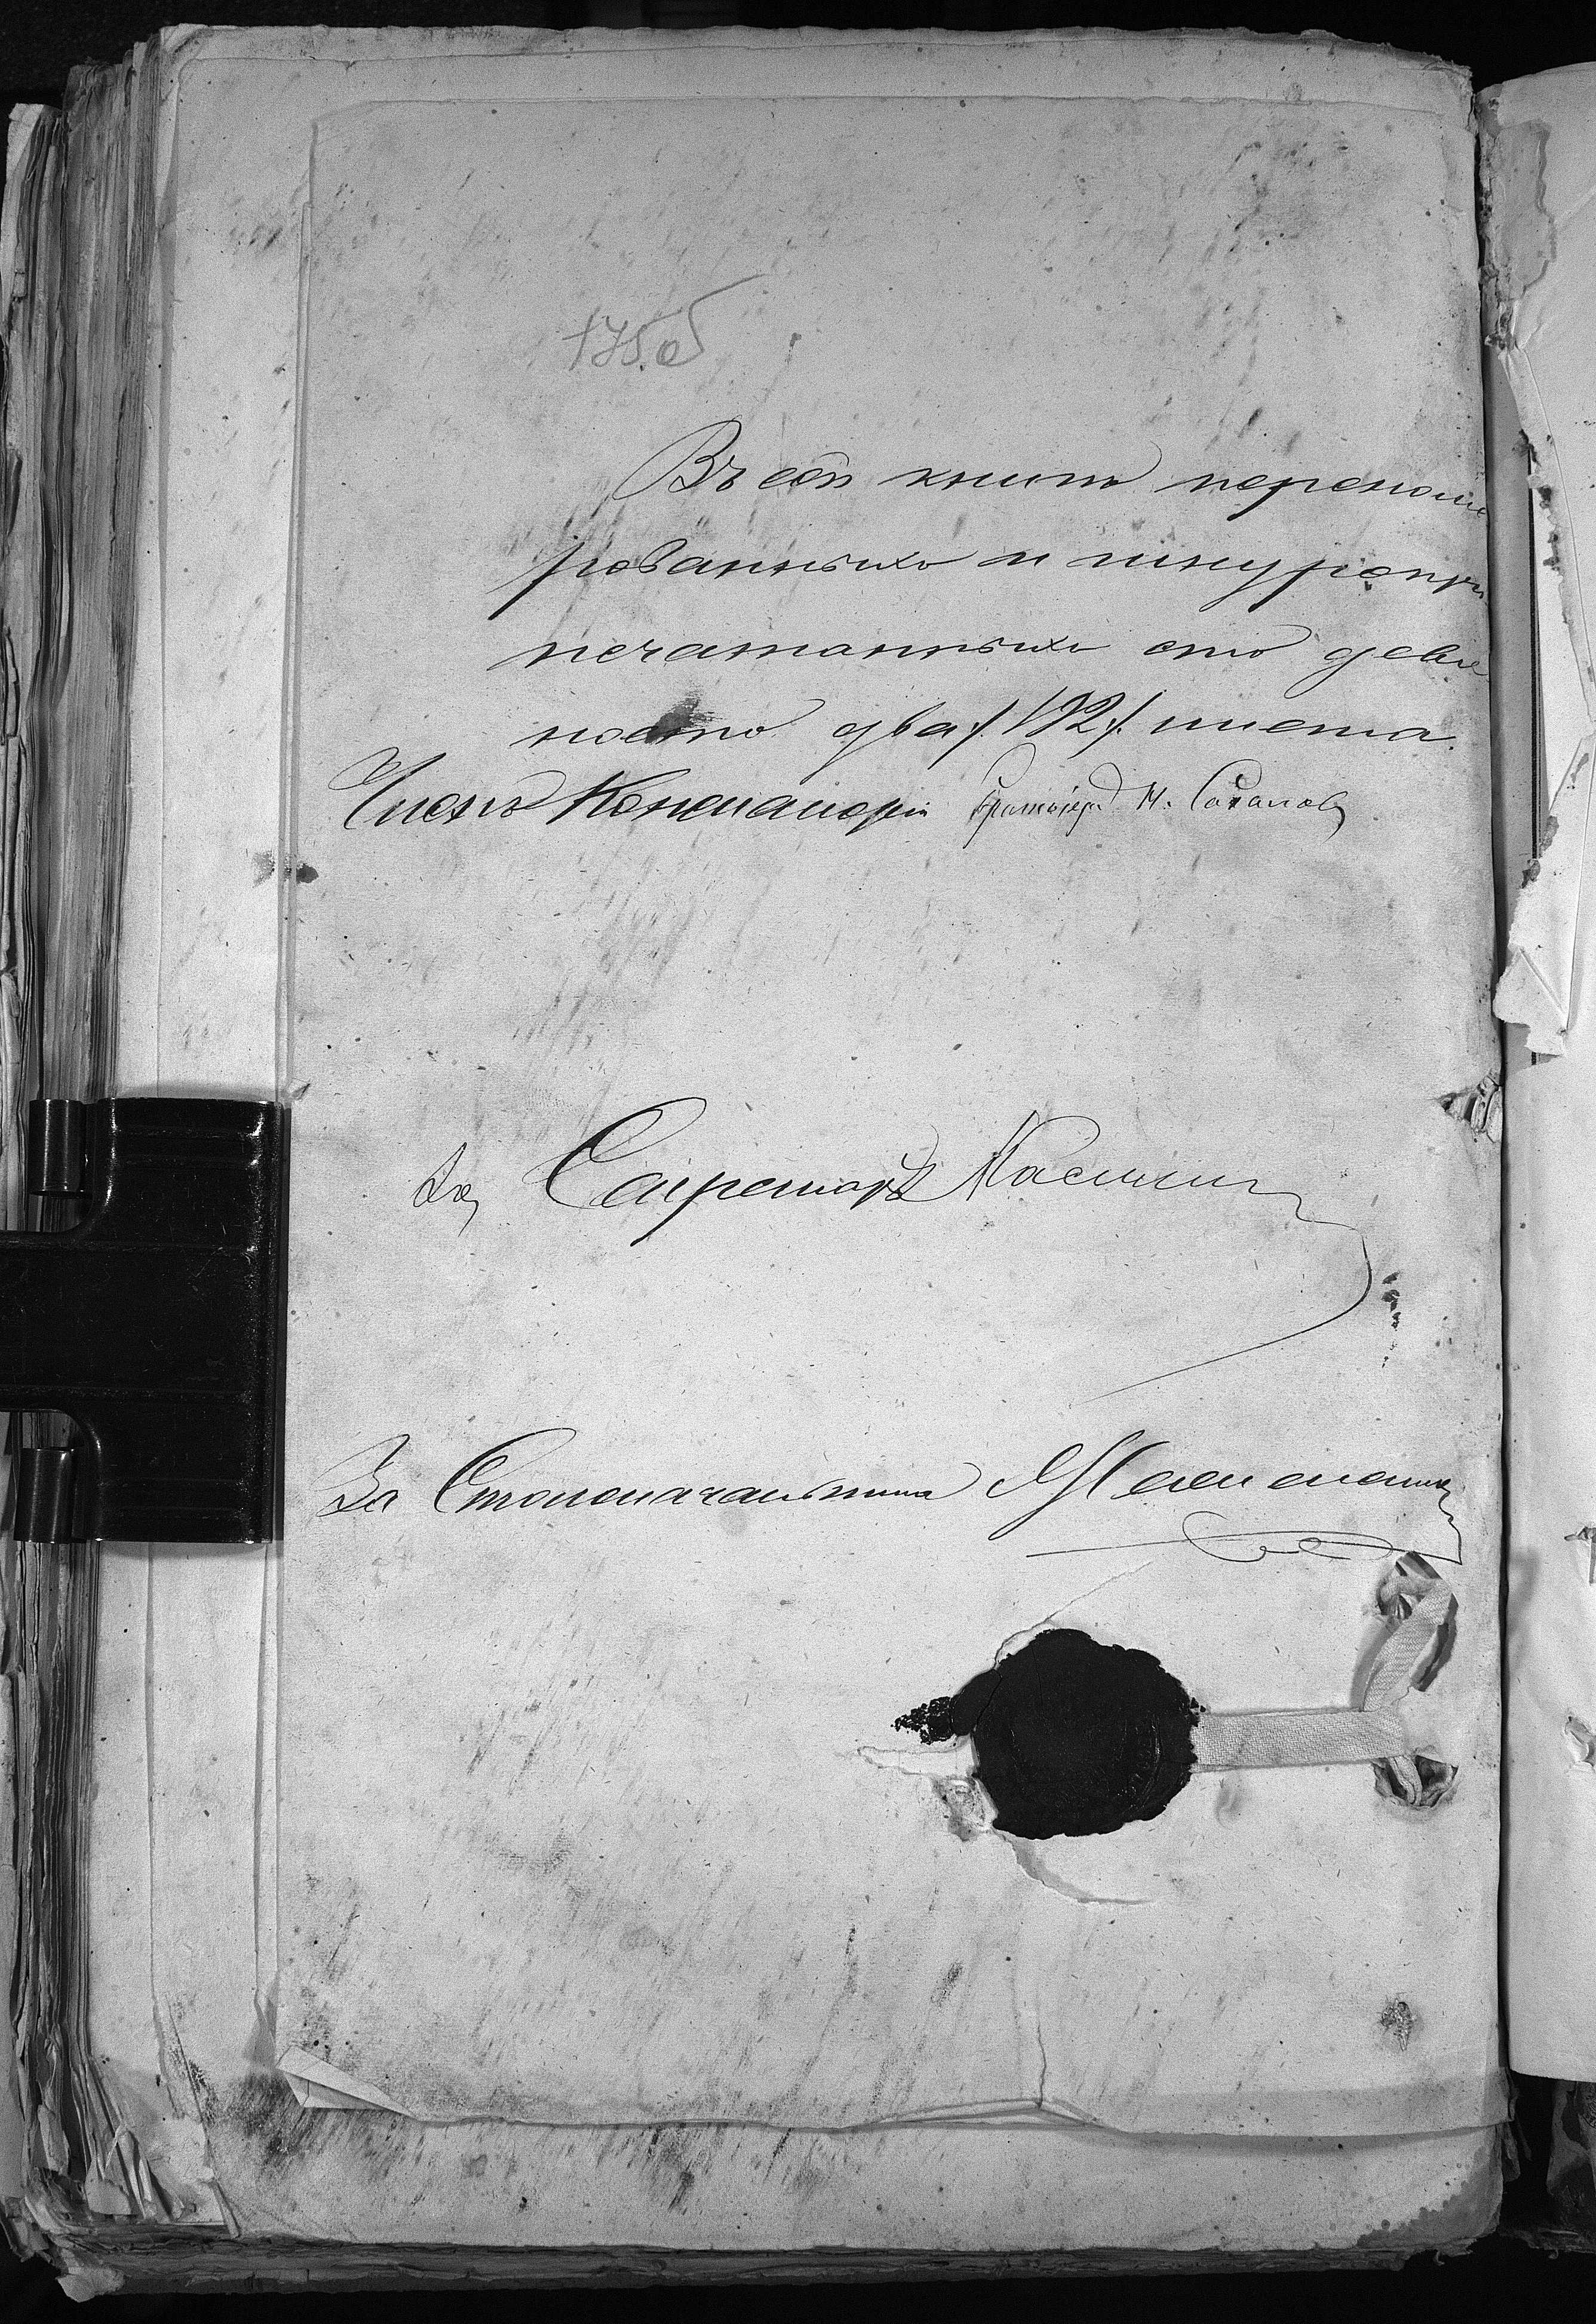 Въ сей книгѣ переноме
рованныхъ и шнуропри
печатанныхъ сто девя
носто два /.192/. листа.
Членъ Консисторіи Протоіерей М.
За Секретаря
За Столоначальника